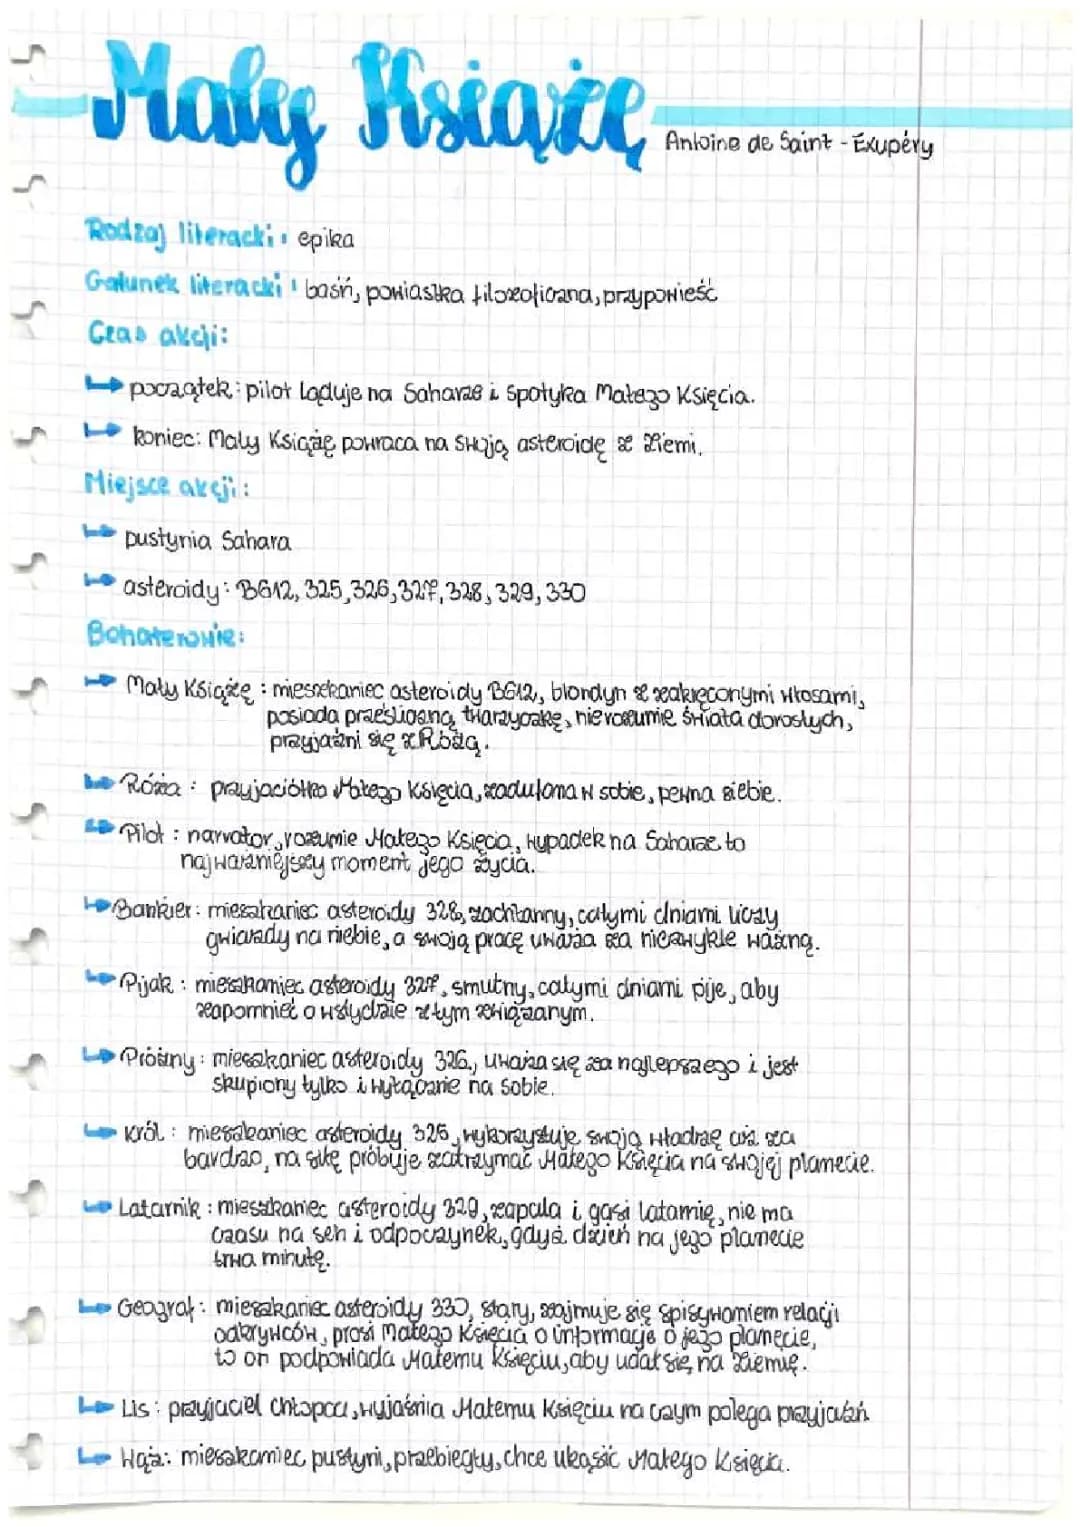 Mały Książę
Antoine de Saint - Exupéry
Rodzaj literacki: epika
Gatunek literacki: baśń, powiastka filozoficzna, przypowieść
Czas akcji:
początek: pilot ląduje na Saharze i spotyka Małego Księcia.
koniec: Mały Książę powraca na swoją asteroidę z Ziemi.
Miejsce akcji:
pustynia Sahara
asteroidy: B612, 325, 326, 327, 328, 329, 330
Bohaterowie:
Mały Książę: mieszkaniec asteroidy B612, blondyn z zakręconymi włosami,
posiada prześliczną twarzyczkę, nie rozumie świata dorosłych,
przyjaźni się z Różą.
Róża: przyjaciółka Małego Księcia, zadufana w sobie, pewna siebie.
Pilot: narrator, rozumie Małego Księcia, wypadek na Saharze to
najważniejszy moment jego życia.
Bankier: mieszkaniec asteroidy 328, zachłanny, całymi dniami liczy
gwiazdy na niebie, a swoją pracę uważa za niezwykle ważną.
Pijak: mieszkaniec asteroidy 327, smutny, całymi dniami pije, aby
zapomnieć o wstydzie z tym związanym.
Próżny: mieszkaniec asteroidy 326, uważa się za najlepszego i jest
skupiony tylko i wyłącznie na sobie.
Król: mieszkaniec asteroidy 325, wykorzystuje swoją władzę aż za
bardzo, na siłę próbuje zatrzymać Małego Księcia na swojej planecie.
Latarnik: mieszkaniec asteroidy 329, zapala i gasi latarnię, nie ma
czasu na sen i odpoczynek, gdyż dzień na jego planecie
trwa minutę.
Geograf: mieszkaniec asteroidy 330, stary, zajmuje się spisywaniem relacji
odkrywców, prosi Małego Księcia o informacje o jego planecie,
to on podpowiada Małemu Księciu, aby udał się na Ziemię.
Lis: przyjaciel chłopca, wyjaśnia Małemu Księciu na czym polega przyjaźń
Wąż: mieszkaniec pustyni, przebiegły, chce ukąsić Małego Księcia.